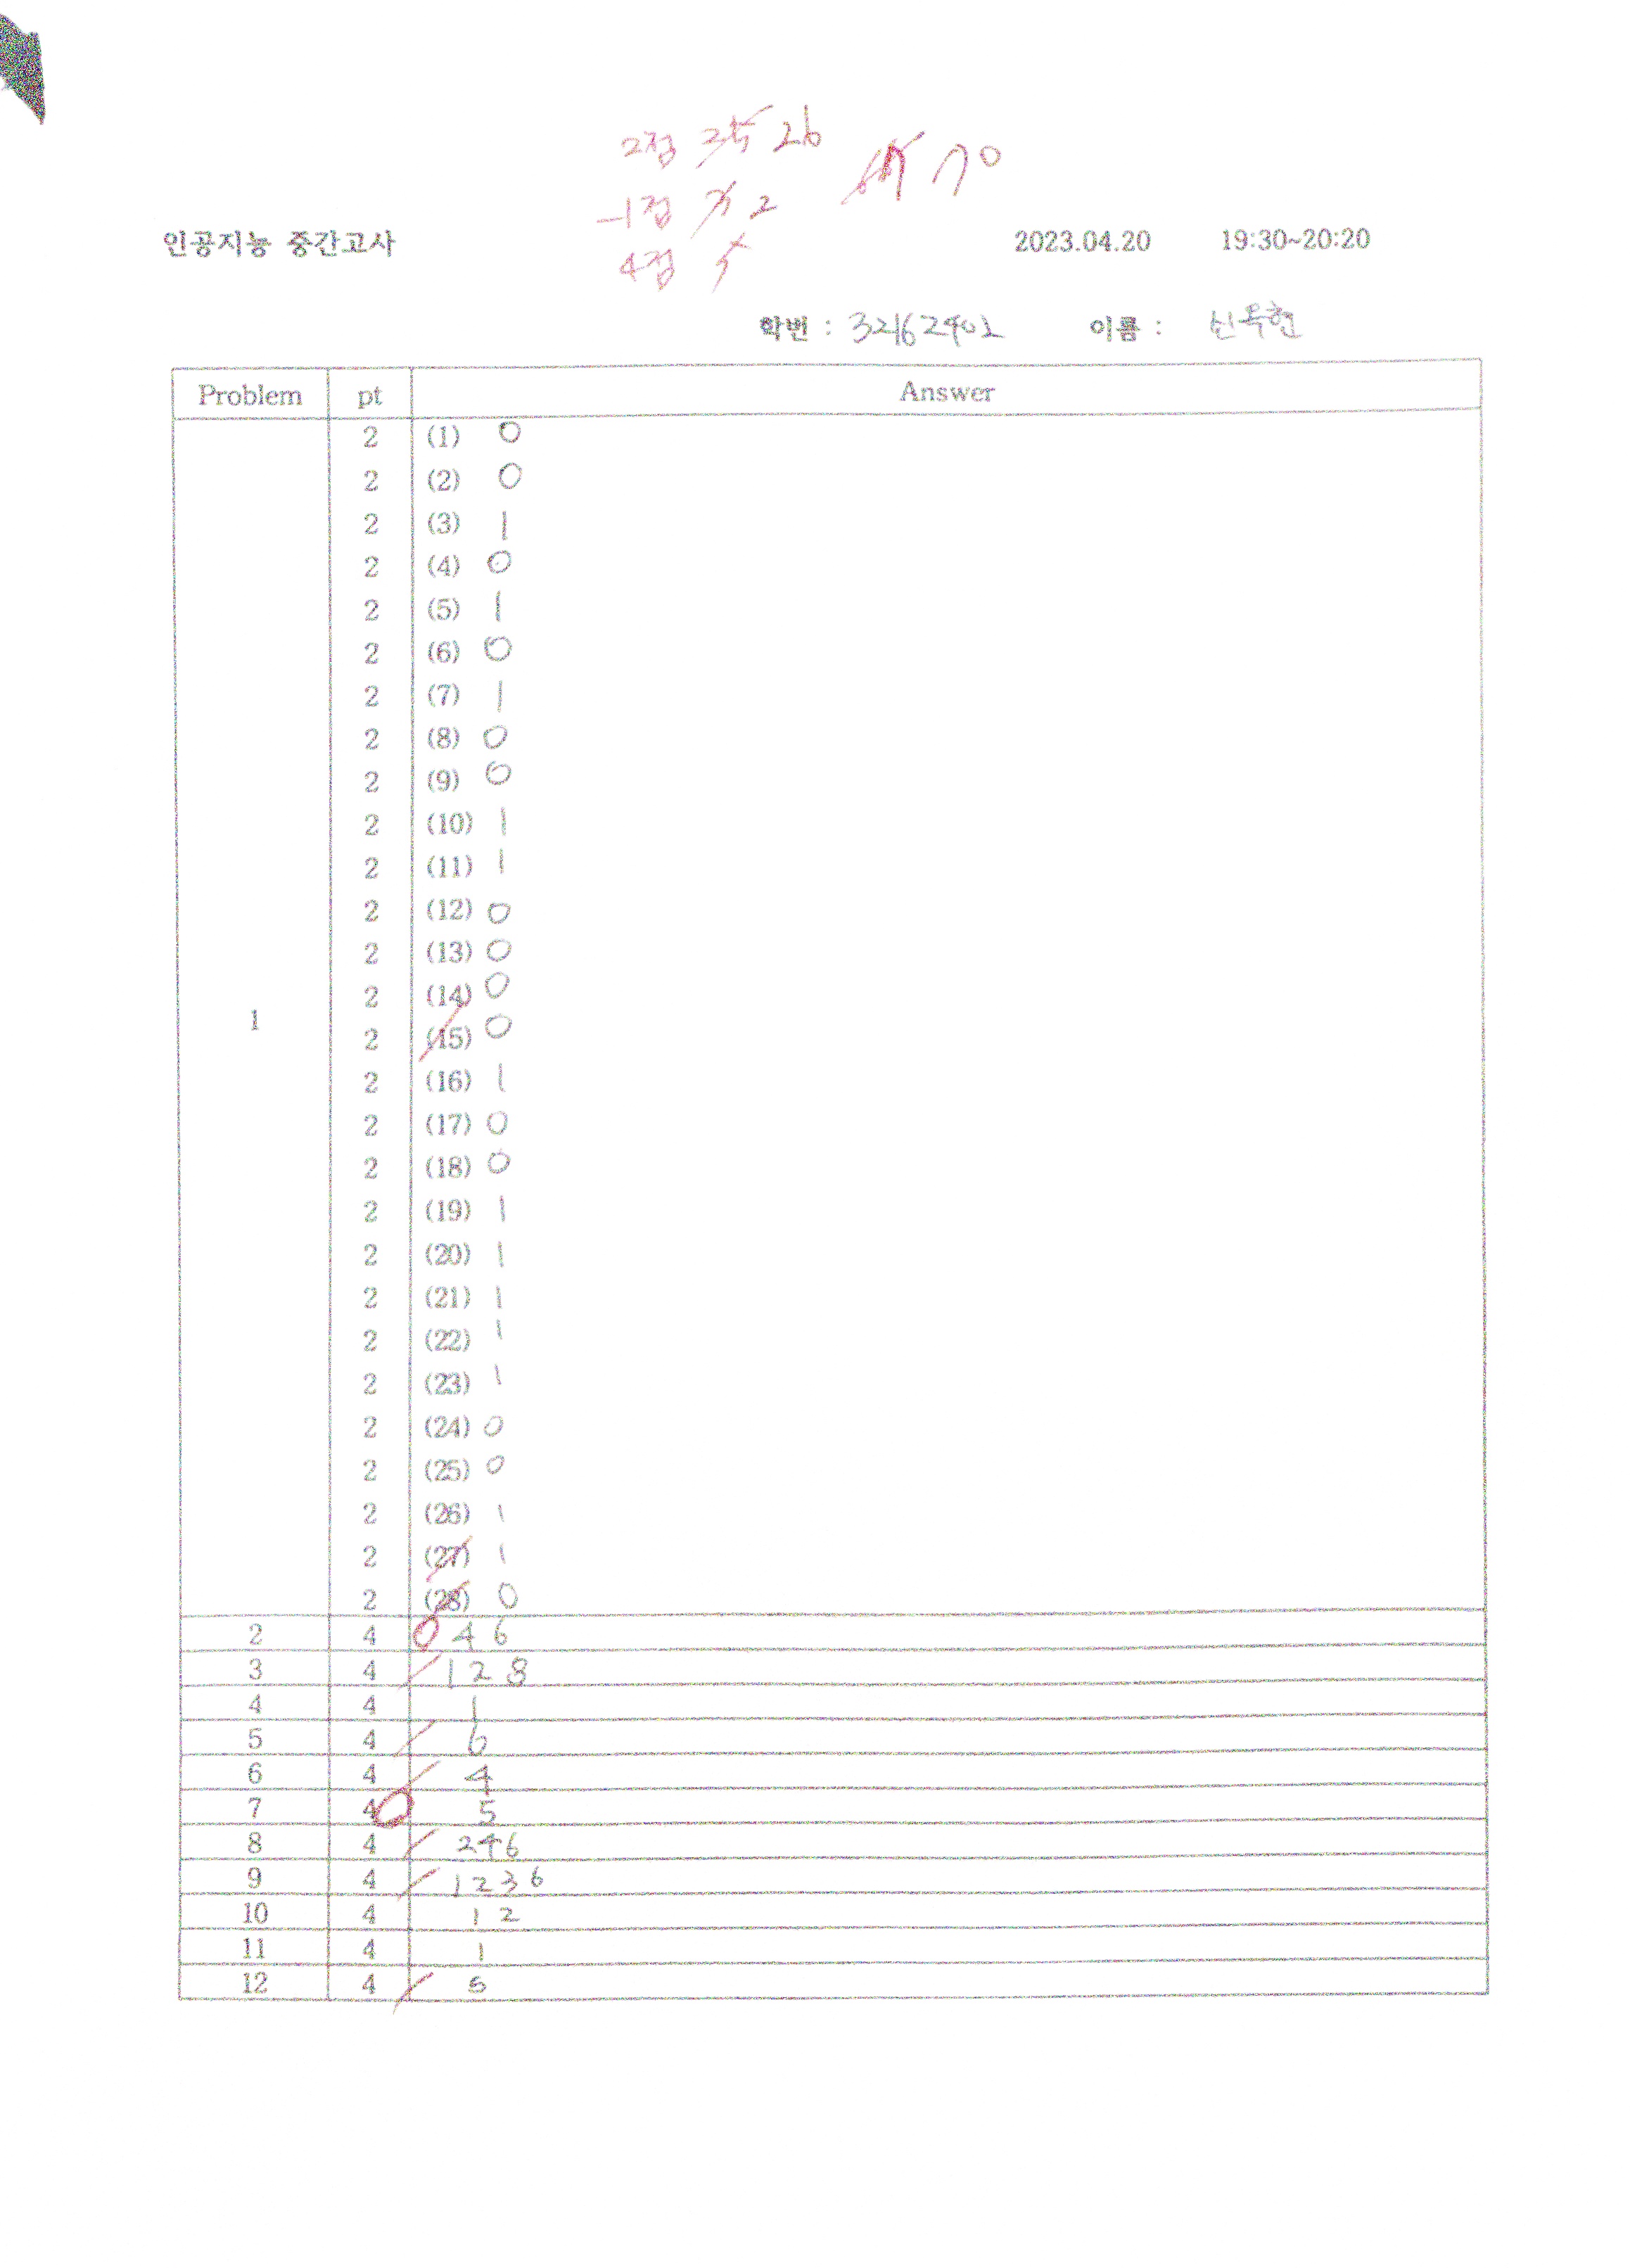 2점 26 70
-1점 2
4점
인공지능 중간고사 2023.04.20 19:30~20:20
학번 : 32162401 이름 : 신욱현
Problem pt Answer
1
2 (1) 0
2 (2) 0
2 (3) 1
2 (4) 0
2 (5) 1
2 (6) 0
2 (7) 1
2 (8) 0
2 (9) 0
2 (10) 1
2 (11) 1
2 (12) 0
2 (13) 0
2 (14) 0
2 (15) 0
2 (16) 1
2 (17) 0
2 (18) 0
2 (19) 1
2 (20) 1
2 (21) 1
2 (22) 1
2 (23) 1
2 (24) 0
2 (25) 0
2 (26) 1
2 (27) 1
2 (28) 0
2 4 4 6
3 4 1 2 8
4 4 1
5 4 6
6 4 4
7 4 5
8 4 2 4 6
9 4 1 2 3 6
10 4 1 2
11 4 1
12 4 5